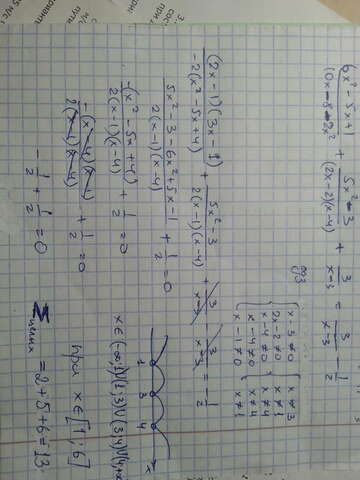 \frac{6x^2-5x+1}{10x-8-2x^2} + \frac{5x^2-3}{(2x-2)(x-4)} + \frac{3}{x-3} = \frac{3}{x-3} - \frac{1}{2}
ОДЗ
x-3≠0 x≠3
2x-2≠0 x≠1
x-4≠0 x≠4
x-4≠0 x≠4
x-1≠0 x≠1
\frac{(2x-1)(3x-1)}{-2(x^2-5x+4)} + \frac{5x^2-3}{2(x-1)(x-4)} + \frac{3}{x-3} - \frac{3}{x-3} = -\frac{1}{2}
\frac{5x^2-3-6x^2+5x-1}{2(x-1)(x-4)} + \frac{1}{2} = 0
1 3 4 x
\frac{-(x^2-5x+4)}{2(x-1)(x-4)} + \frac{1}{2} = 0
x∈(-∞;1)∪(1;3)∪(3;4)∪(4;+∞)
\frac{-(x-4)(x-1)}{2(x-1)(x-4)} + \frac{1}{2} = 0
при x∈[1;6]
-\frac{1}{2} + \frac{1}{2} = 0
Σ целых = 2+5+6=13.